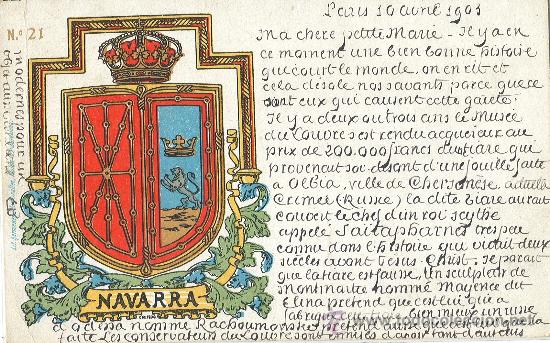 Paris 10 avril 1903
Nº 21
Ma chere petite Marie - Il y a en
ce moment une bien bonne histoire
que court le monde, on en rit et
cela désole nos savants parce que ce
sont eux qui causent cette gaieté:
Il y a deux ou trois ans le Musée
du Louvre s'est rendu acquéreur au
prix de 200.000 francs d'une tiare qui
provenait soi-disant d'une fouille faite
a Olbia, ville de Chersonèse actuelle
Crimée (Russie) la dite tiare aurait
couvert le chef d'un roi scythe
appelé Saitapharnes tres peu
connu dans l'histoire qui vivait deux
siecles avant Jesus-Christ. Il parait
que la tiare est fausse, un sculpteur de
Montmartre nommé Mayence dit
Elina prétend que c'est lui qui a
fabriqué bien mieux un russe
d'Odessa nommé Rachoumowski prétend aussi que c'est lui qui l'a
faite Les conservateurs du Louvre sont
modernes pour une
NAVARRA
todocoleccion.net